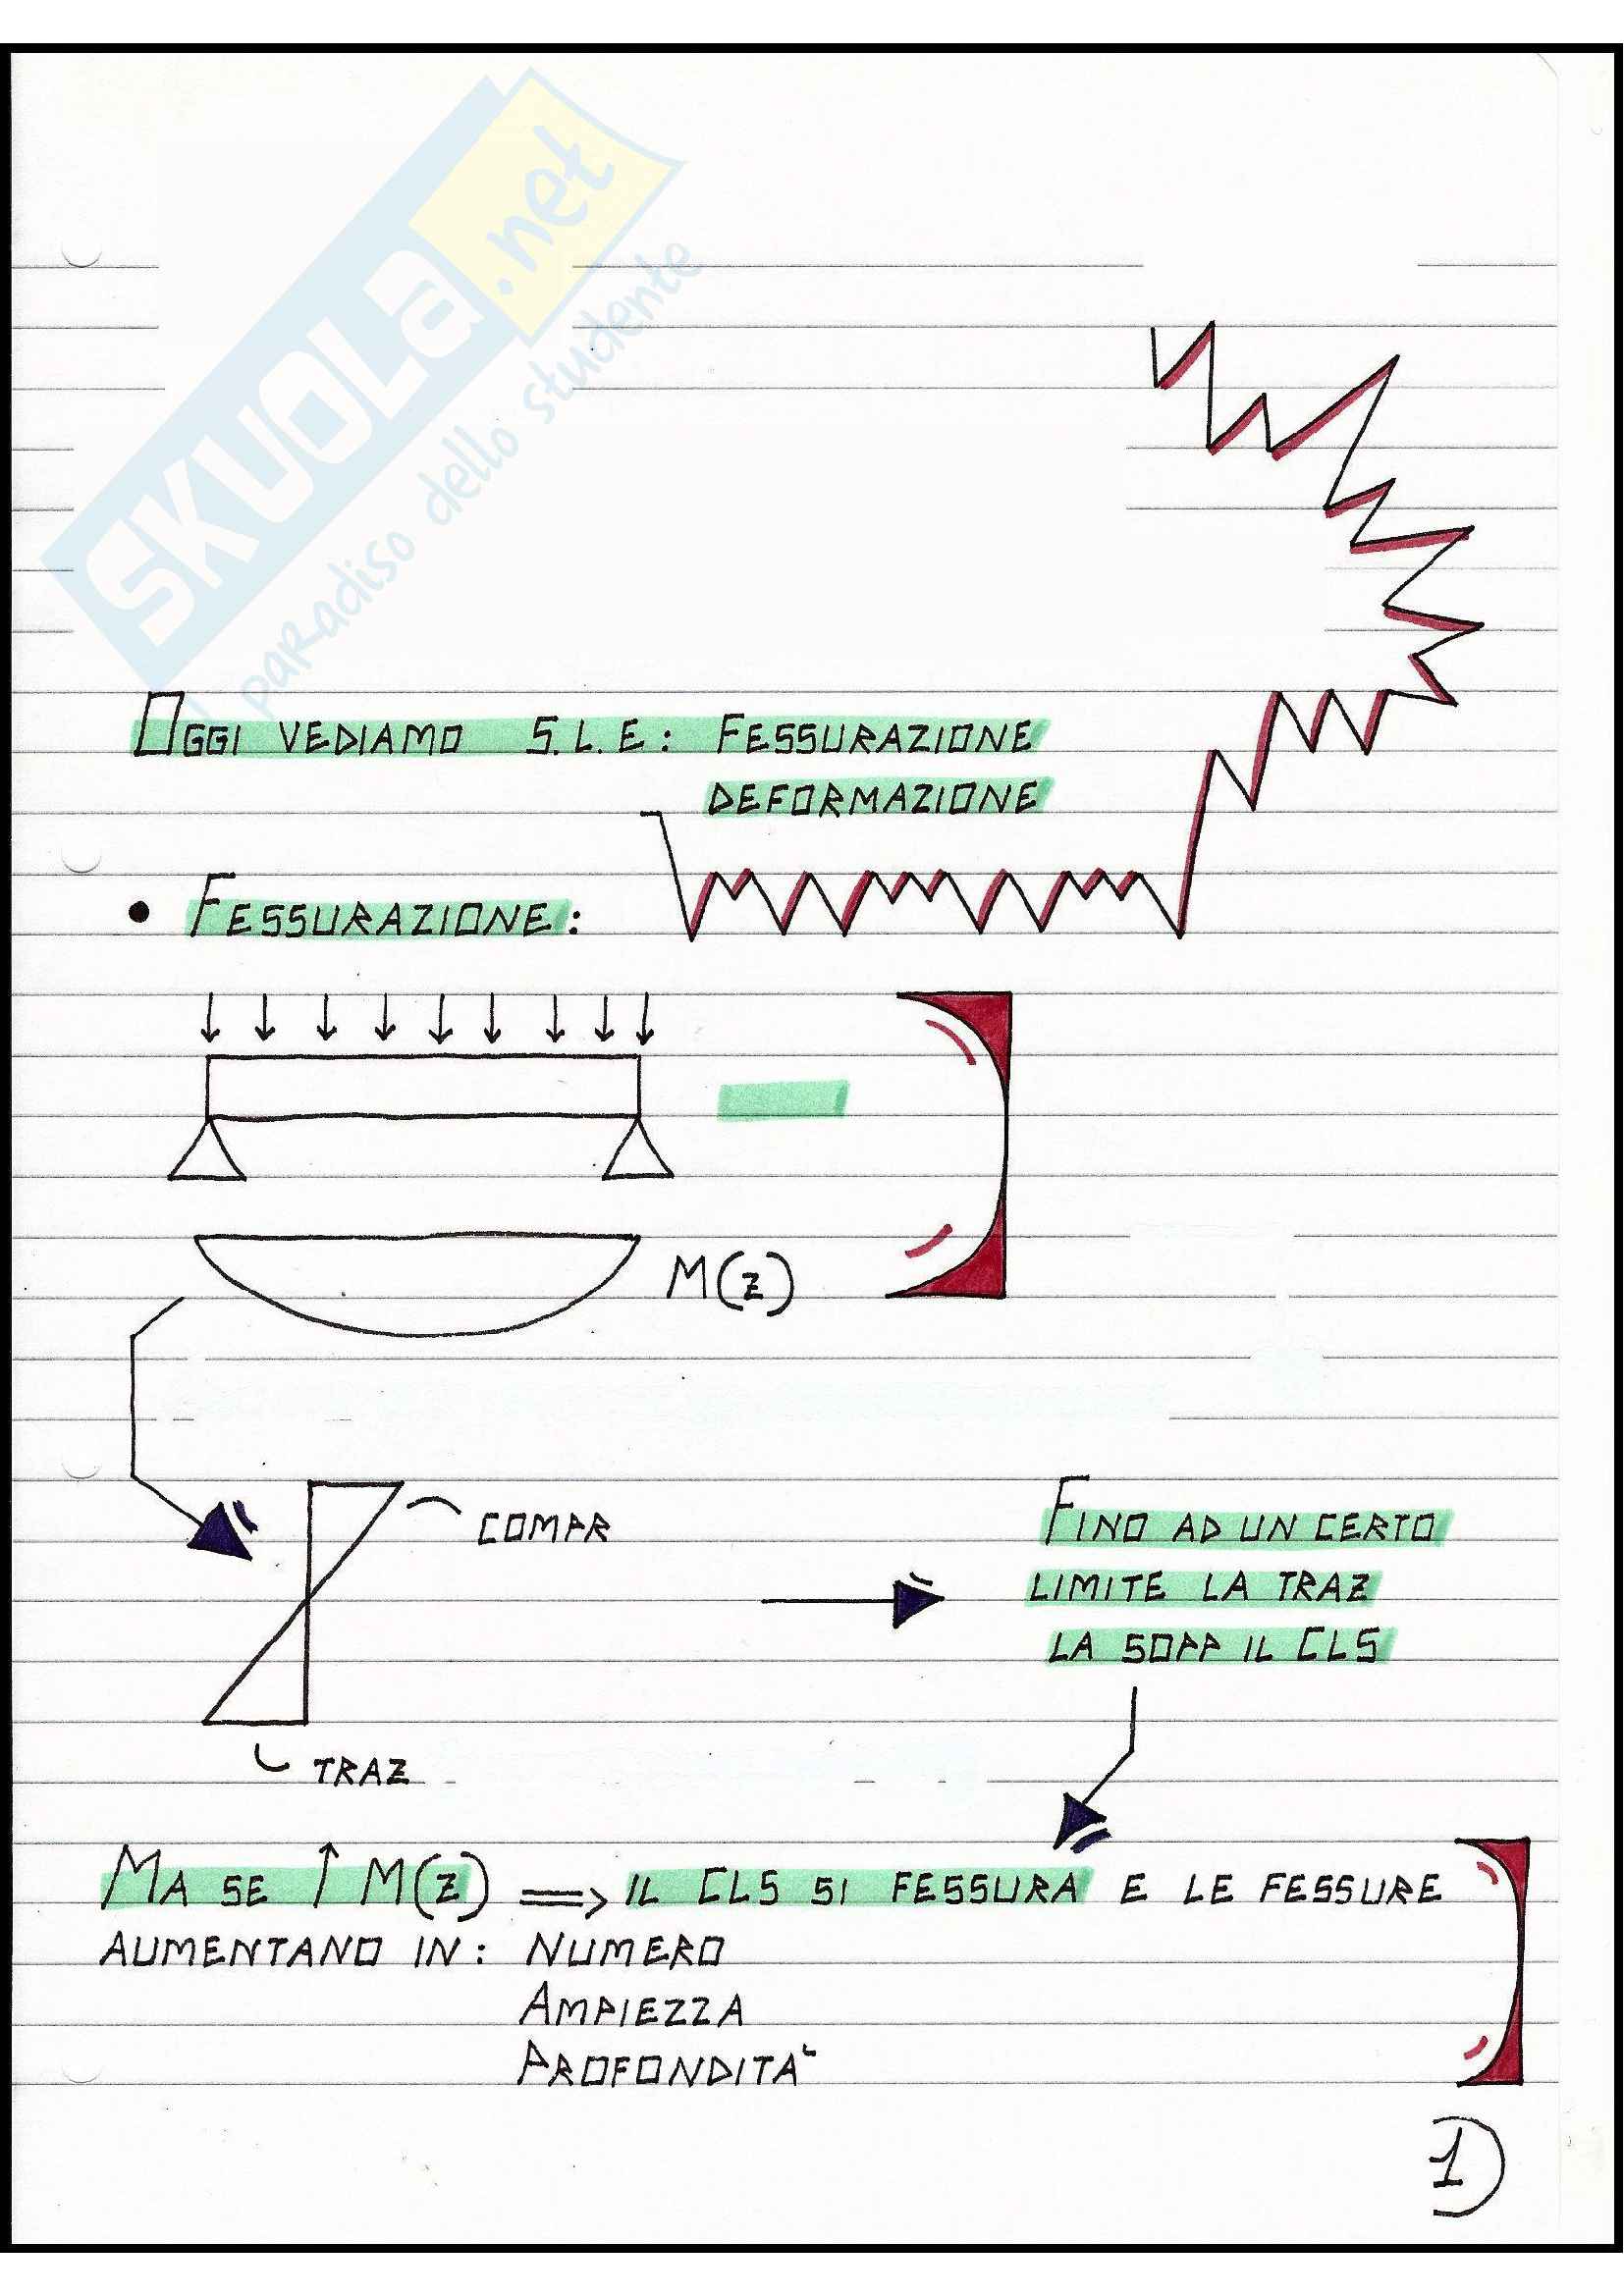 SKUOLA.net
paradiso dello studente
OGGI VEDIAMO S.L.E: FESSURAZIONE
DEFORMAZIONE
• FESSURAZIONE:
M(z)
COMPR
FINO AD UN CERTO
LIMITE LA TRAZ
LA SOPP IL CLS
TRAZ
MA SE ↑ M(z) ⟹ IL CLS SI FESSURA E LE FESSURE
AUMENTANO IN: NUMERO
AMPIEZZA
PROFONDITA'
1